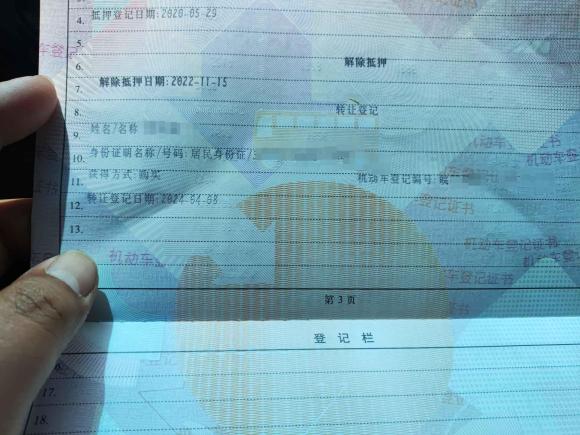 4. 抵押登记日期:2020-05-29
5.
6. 解除抵押
7. 解除抵押日期:2022-11-15
8. 转让登记
9. 姓名/名称
10. 身份证明名称/号码:居民身份证/
11. 获得方式:购买 机动车登记编号:皖
12. 转让登记日期:2024-04-08
13.
第 3 页
登 记 栏
17.
18.
车登记
机动车登记证书
机动车登记证书
登记证书
机动车登记证书
机动车
动车登记证书